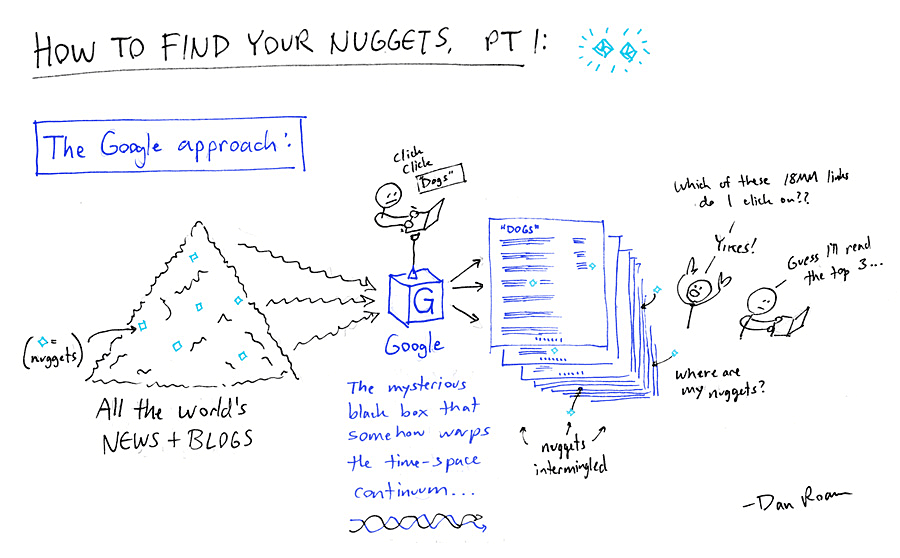 HOW TO FIND YOUR NUGGETS, PT 1:
The Google approach:
click
click
"Dogs"
Which of these 18MM links
do I click on??
Yikes!
Guess I'll read
the top 3...
"DOGS"
G
Google
(◇ =
nuggets)
All the world's
NEWS + BLOGS
The mysterious
black box that
somehow warps
the time-space
continuum...
where are
my nuggets?
nuggets
intermingled
-Dan Roam